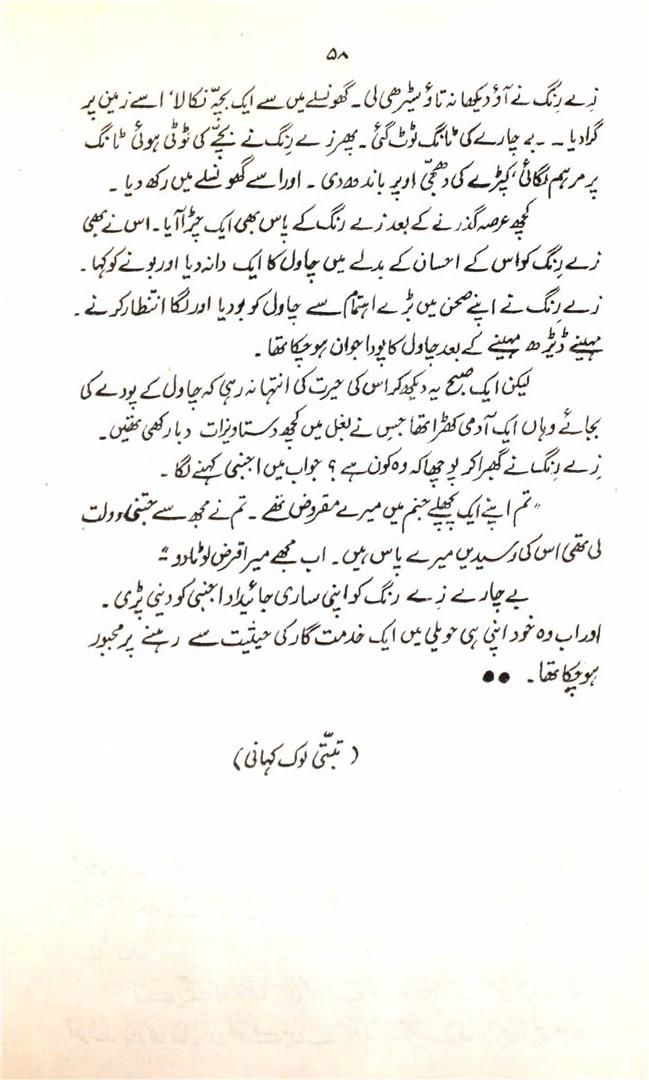 ۵۸
زے رِنگ نے آؤ دیکھا نہ تاؤ سیڑھی لی۔ گھونسلے میں سے ایک بچّہ نکالا، اسے زمین پر
گرا دیا ۔ ۔ بے چارے کی ٹانگ ٹوٹ گئی ۔ پھر زے رِنگ نے بچّے کی ٹوٹی ہوئی ٹانگ
پر مرہم لگائی، کپڑے کی دھجّی اوپر باندھ دی ۔ اور اسے گھونسلے میں رکھ دیا ۔
کچھ عرصہ گذرنے کے بعد زے رنگ کے پاس بھی ایک چڑا آیا۔ اس نے بھی
زے رِنگ کو اس کے احسان کے بدلے میں چاول کا ایک دانہ دیا اور بونے کو کہا ۔
زے رِنگ نے اپنے صحن میں بڑے اہتمام سے چاول کو بو دیا اور لگا انتظار کرنے ۔
مہینے ڈیڑھ مہینے کے بعد چاول کا پودا جوان ہو چکا تھا ۔
لیکن ایک صبح یہ دیکھ کر اس کی حیرت کی انتہا نہ رہی کہ چاول کے پودے کی
بجائے وہاں ایک آدمی کھڑا تھا جس نے بغل میں کچھ دستاویزات دبا رکھی تھیں ۔
زے رِنگ نے گھبرا کر پوچھا کہ وہ کون ہے ؟ جواب میں اجنبی کہنے لگا ۔
"تم اپنے ایک پچھلے جنم میں میرے مقروض تھے ۔ تم نے مجھ سے جتنی دولت
لی تھی اس کی رسیدیں میرے پاس ہیں۔ اب مجھے میرا قرض لوٹا دو"
بے چارے زے رنگ کو اپنی ساری جائیداد اجنبی کو دینی پڑی ۔
اور اب وہ خود اپنی ہی حویلی میں ایک خدمت گار کی حیثیت سے رہنے پر مجبور
ہو چکا تھا ۔ ●●
(تبتّی لوک کہانی)